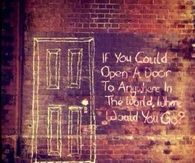 If You Could
Open A Door
To Anywhere In
The World, Where
Would You Go?